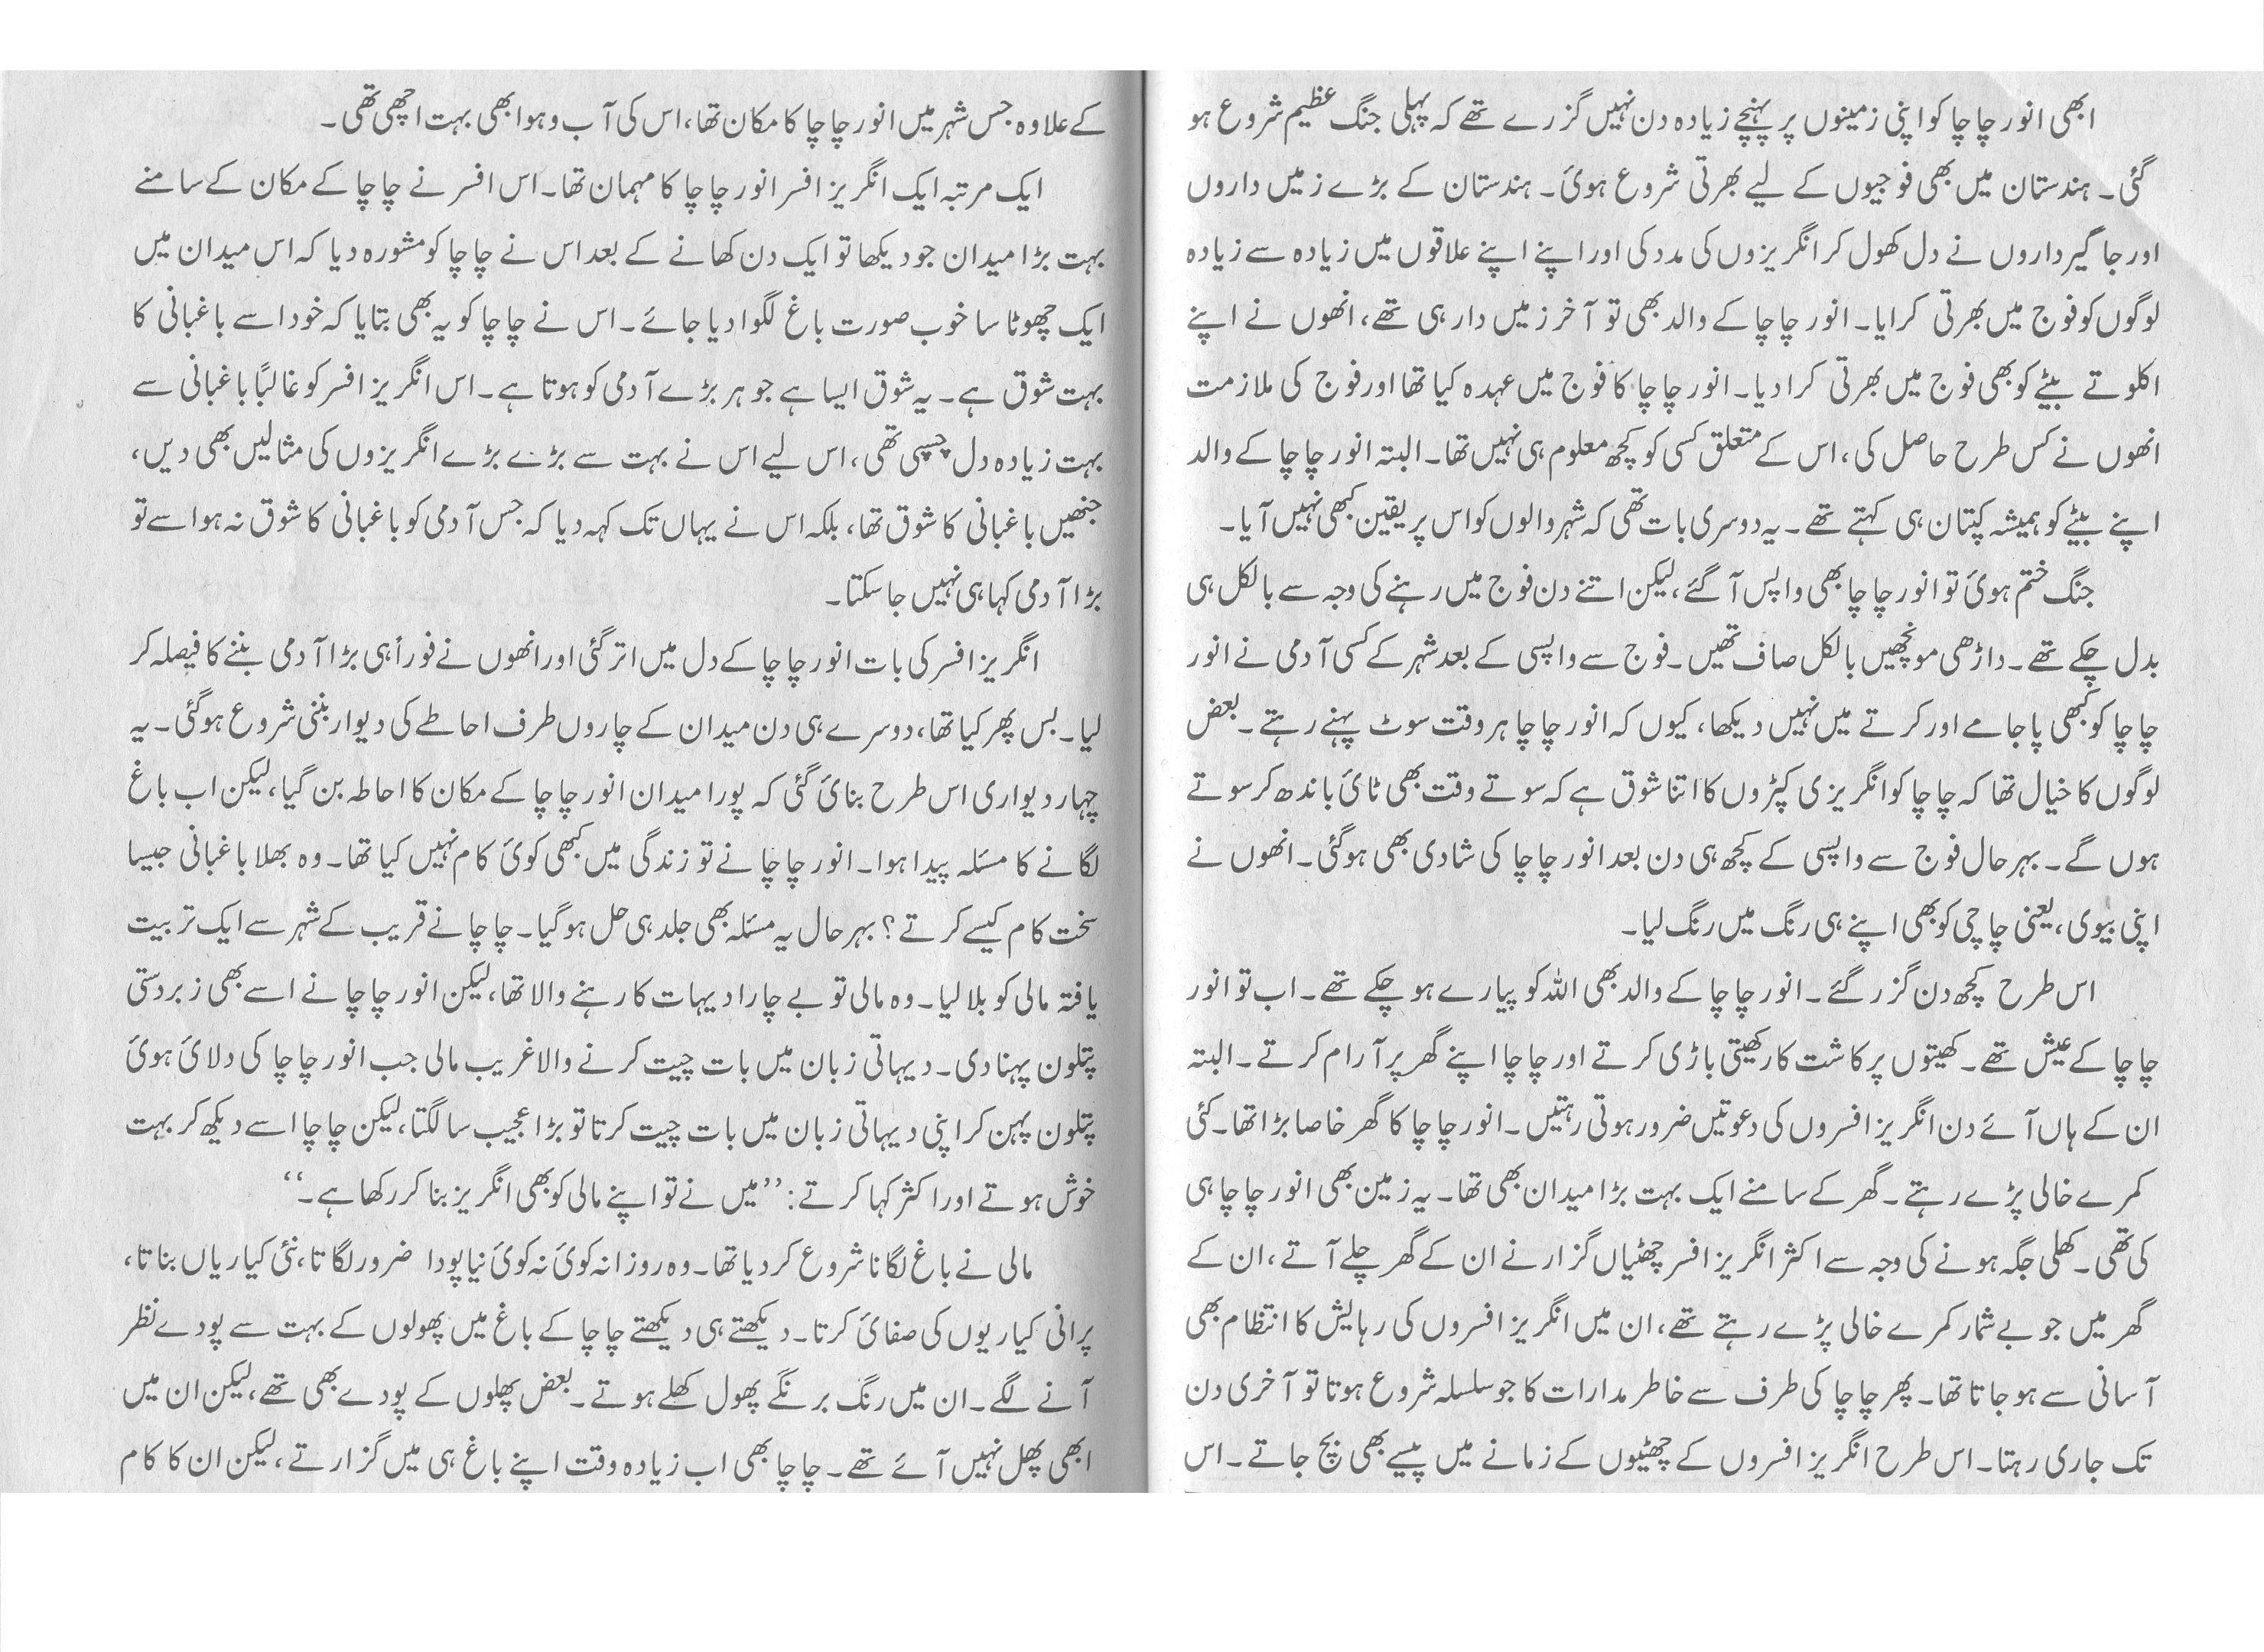 ابھی انور چاچا کو اپنی زمینوں پر پہنچے زیادہ دن نہیں گزرے تھے کہ پہلی جنگ عظیم شروع ہو
گئی۔ ہندستان میں بھی فوجیوں کے لیے بھرتی شروع ہوئ۔ ہندستان کے بڑے زمیں داروں
اور جاگیرداروں نے دل کھول کر انگریزوں کی مدد کی اور اپنے اپنے علاقوں میں زیادہ سے زیادہ
لوگوں کو فوج میں بھرتی کرایا۔ انور چاچا کے والد بھی تو آخر زمیں دار ہی تھے، انھوں نے اپنے
اکلوتے بیٹے کو بھی فوج میں بھرتی کرا دیا۔ انور چاچا کا فوج میں عہدہ کیا تھا اور فوج کی ملازمت
انھوں نے کس طرح حاصل کی، اس کے متعلق کسی کو کچھ معلوم ہی نہیں تھا۔ البتہ انور چاچا کے والد
اپنے بیٹے کو ہمیشہ کپتان ہی کہتے تھے۔ یہ دوسری بات تھی کہ شہر والوں کو اس پر یقین کبھی نہیں آیا۔
جنگ ختم ہوئ تو انور چاچا بھی واپس آ گئے، لیکن اتنے دن فوج میں رہنے کی وجہ سے بالکل ہی
بدل چکے تھے۔ داڑھی مونچھیں بالکل صاف تھیں۔ فوج سے واپسی کے بعد شہر کے کسی آدمی نے انور
چاچا کو کبھی پاجامے اور کرتے میں نہیں دیکھا، کیوں کہ انور چاچا ہر وقت سوٹ پہنے رہتے۔ بعض
لوگوں کا خیال تھا کہ چاچا کو انگریزی کپڑوں کا اتنا شوق ہے کہ سوتے وقت بھی ٹائ باندھ کر سوتے
ہوں گے۔ بہرحال فوج سے واپسی کے کچھ ہی دن بعد انور چاچا کی شادی بھی ہو گئی۔ انھوں نے
اپنی بیوی، یعنی چاچی کو بھی اپنے ہی رنگ میں رنگ لیا۔
اس طرح کچھ دن گزر گئے۔ انور چاچا کے والد بھی اللہ کو پیارے ہو چکے تھے۔ اب تو انور
چاچا کے عیش تھے۔ کھیتوں پر کاشت کار کھیتی باڑی کرتے اور چاچا اپنے گھر پر آرام کرتے۔ البتہ
ان کے ہاں آئے دن انگریز افسروں کی دعوتیں ضرور ہوتی رہتیں۔ انور چاچا کا گھر خاصا بڑا تھا۔ کئی
کمرے خالی پڑے رہتے۔ گھر کے سامنے ایک بہت بڑا میدان بھی تھا۔ یہ زمین بھی انور چاچا ہی
کی تھی۔ کھلی جگہ ہونے کی وجہ سے اکثر انگریز افسر چھٹیاں گزارنے ان کے گھر چلے آتے، ان کے
گھر میں جو بے شمار کمرے خالی پڑے رہتے تھے، ان میں انگریز افسروں کی رہایش کا انتظام بھی
آسانی سے ہو جاتا تھا۔ پھر چاچا کی طرف سے خاطر مدارات کا جو سلسلہ شروع ہوتا تو آخری دن
تک جاری رہتا۔ اس طرح انگریز افسروں کے چھٹیوں کے زمانے میں پیسے بھی بچ جاتے۔ اس
کے علاوہ جس شہر میں انور چاچا کا مکان تھا، اس کی آب و ہوا بھی بہت اچھی تھی۔
ایک مرتبہ ایک انگریز افسر انور چاچا کا مہمان تھا۔ اس افسر نے چاچا کے مکان کے سامنے
بہت بڑا میدان جو دیکھا تو ایک دن کھانے کے بعد اس نے چاچا کو مشورہ دیا کہ اس میدان میں
ایک چھوٹا سا خوب صورت باغ لگوا دیا جائے۔ اس نے چاچا کو یہ بھی بتایا کہ خود اسے باغبانی کا
بہت شوق ہے۔ یہ شوق ایسا ہے جو ہر بڑے آدمی کو ہوتا ہے۔ اس انگریز افسر کو غالباً باغبانی سے
بہت زیادہ دل چسپی تھی، اس لیے اس نے بہت سے بڑے بڑے انگریزوں کی مثالیں بھی دیں،
جنھیں باغبانی کا شوق تھا، بلکہ اس نے یہاں تک کہہ دیا کہ جس آدمی کو باغبانی کا شوق نہ ہو اسے تو
بڑا آدمی کہا ہی نہیں جا سکتا۔
انگریز افسر کی بات انور چاچا کے دل میں اتر گئی اور انھوں نے فوراً ہی بڑا آدمی بننے کا فیصلہ کر
لیا۔ بس پھر کیا تھا، دوسرے ہی دن میدان کے چاروں طرف احاطے کی دیوار بننی شروع ہو گئی۔ یہ
چہار دیواری اس طرح بنائ گئی کہ پورا میدان انور چاچا کے مکان کا احاطہ بن گیا، لیکن اب باغ
لگانے کا مسئلہ پیدا ہوا۔ انور چاچا نے تو زندگی میں کبھی کوئ کام نہیں کیا تھا۔ وہ بھلا باغبانی جیسا
سخت کام کیسے کرتے؟ بہرحال یہ مسئلہ بھی جلد ہی حل ہو گیا۔ چاچا نے قریب کے شہر سے ایک تربیت
یافتہ مالی کو بلا لیا۔ وہ مالی تو بے چارا دیہات کا رہنے والا تھا، لیکن انور چاچا نے اسے بھی زبردستی
پتلون پہنا دی۔ دیہاتی زبان میں بات چیت کرنے والا غریب مالی جب انور چاچا کی دلائ ہوئ
پتلون پہن کر اپنی دیہاتی زبان میں بات چیت کرتا تو بڑا عجیب سا لگتا، لیکن چاچا اسے دیکھ کر بہت
خوش ہوتے اور اکثر کہا کرتے: ’’میں نے تو اپنے مالی کو بھی انگریز بنا کر رکھا ہے۔‘‘
مالی نے باغ لگانا شروع کر دیا تھا۔ وہ روزانہ کوئ نہ کوئ نیا پودا ضرور لگاتا، نئی کیاریاں بناتا،
پرانی کیاریوں کی صفائ کرتا۔ دیکھتے ہی دیکھتے چاچا کے باغ میں پھولوں کے بہت سے پودے نظر
آنے لگے۔ ان میں رنگ برنگے پھول کھلے ہوتے۔ بعض پھلوں کے پودے بھی تھے، لیکن ان میں
ابھی پھل نہیں آئے تھے۔ چاچا بھی اب زیادہ وقت اپنے باغ ہی میں گزارتے، لیکن ان کا کام